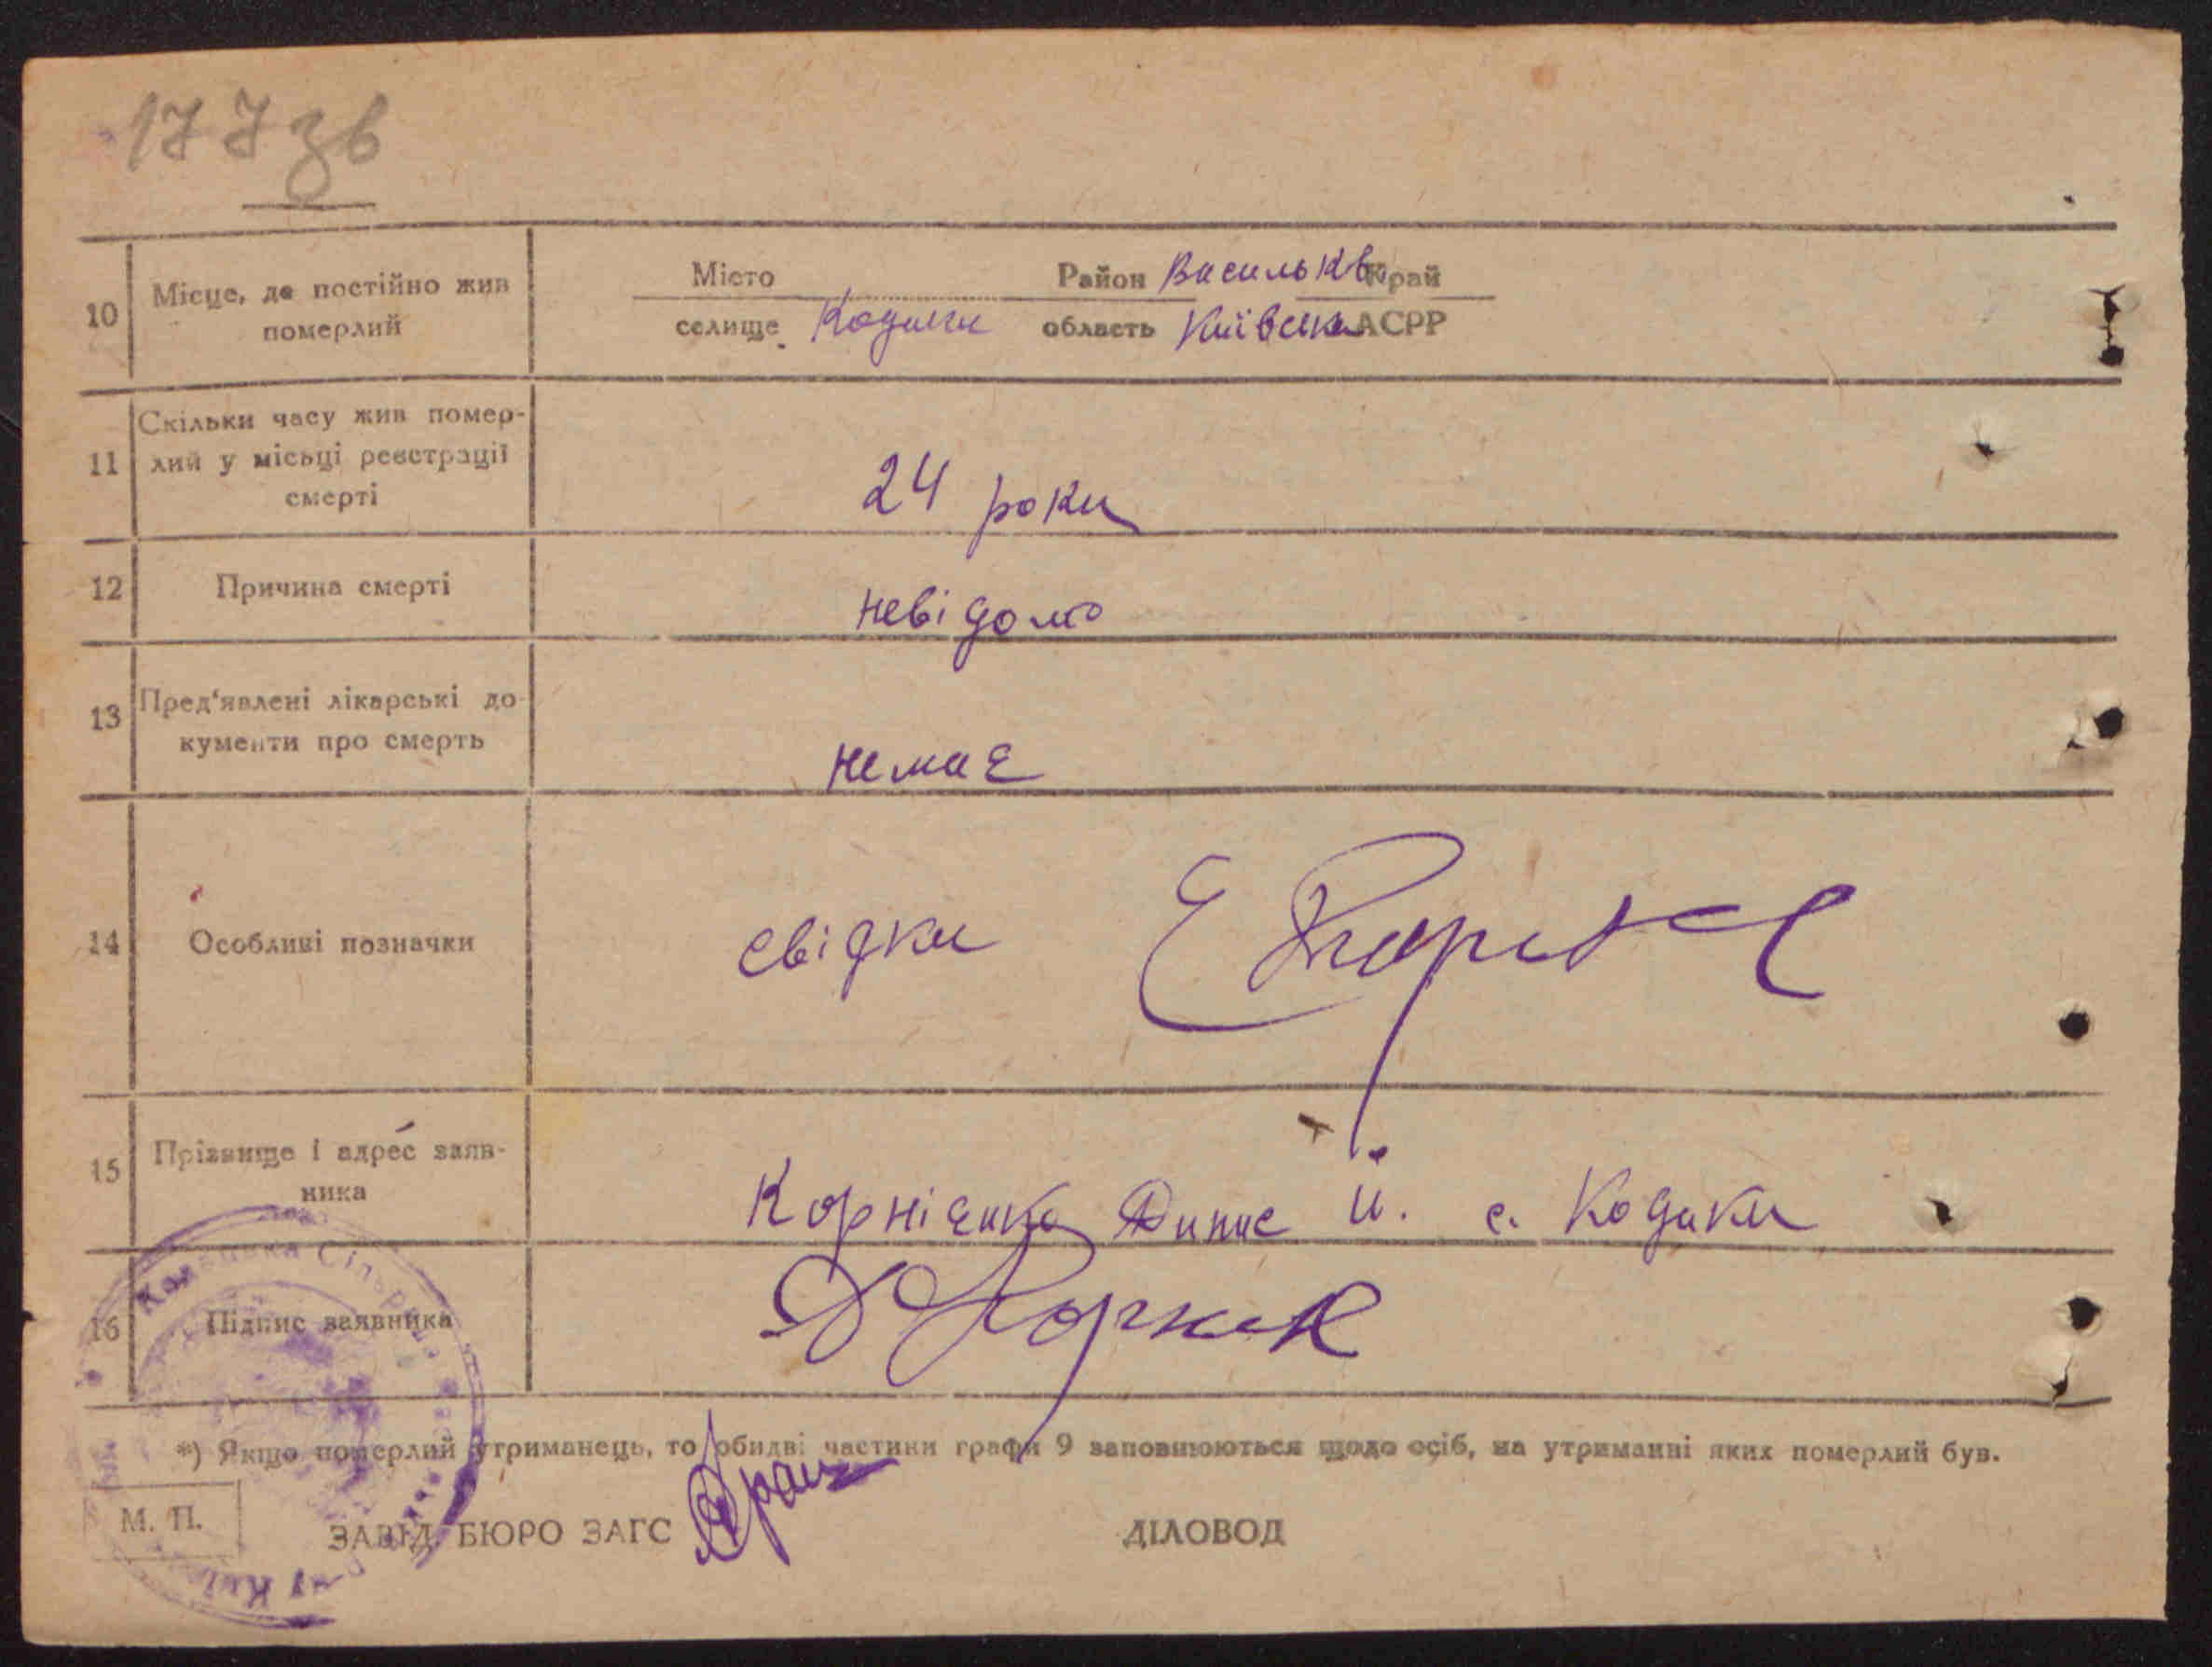 177 зв
10 Місце, де постійно жив померлий
Місто Район Васильків Край
селище Кодаки область Київська АСРР
11 Скільки часу жив помер-
лий у місьці реєстрації
смерті
24 роки
12 Причина смерті
невідомо
13 Пред'явлені лікарські до-
кументи про смерть
немає
14 Особливі позначки
свідки
15 Прізвище і адрес заяв-
ника
Корнієнко Динис Й. с. Кодаки
16 Підпис заявника
*) Якщо померлий утриманець, то обидві частини графи 9 заповнюються щодо осіб, на утриманні яких померлий був.
М. П.
ЗАВІД. БЮРО ЗАГС ДІЛОВОД